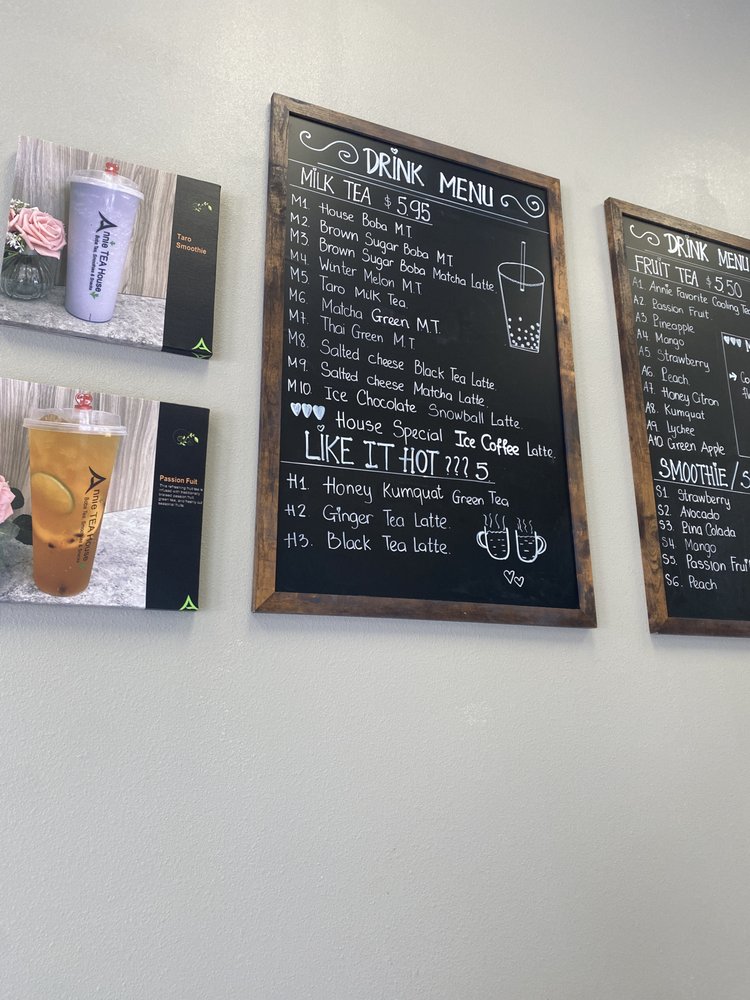 Taro
Smoothie
Annie TEA House
Boba Tea, Smoothies & Snacks
Passion Fuit
This refreshing fruit tea is
infused with traditionally
Annie TEA House
DRINK MENU
MILK TEA $5.95
M1. House Boba M.T
M2. Brown Sugar Boba M.T
M3. Brown Sugar Boba Matcha Latte.
M4. Winter Melon M.T
M5. Taro Milk Tea.
M6. Matcha Green M.T.
M7. Thai Green M.T
M8. Salted cheese Black Tea Latte
M9. Salted cheese Matcha Latte.
M10. Ice Chocolate Snowball Latte.
House Special Ice Coffee Latte.
LIKE IT HOT ??? 5
H1. Honey Kumquat Green Tea
H2. Ginger Tea Latte.
H3. Black Tea Latte.
DRINK MENU
FRUIT TEA $5.50
A1. Annie Favorite Cooling Tea
A2. Passion Fruit.
A3. Pineapple
A4. Mango
A5. Strawberry
A6. Peach.
A7. Honey Citron
A8. Kumquat
A9. Lychee
A10. Green Apple
SMOOTHIE/S
S1. Strawberry
S2. Avocado
S3. Pina Colada
S4. Mango
S5. Passion Frui
S6. Peach